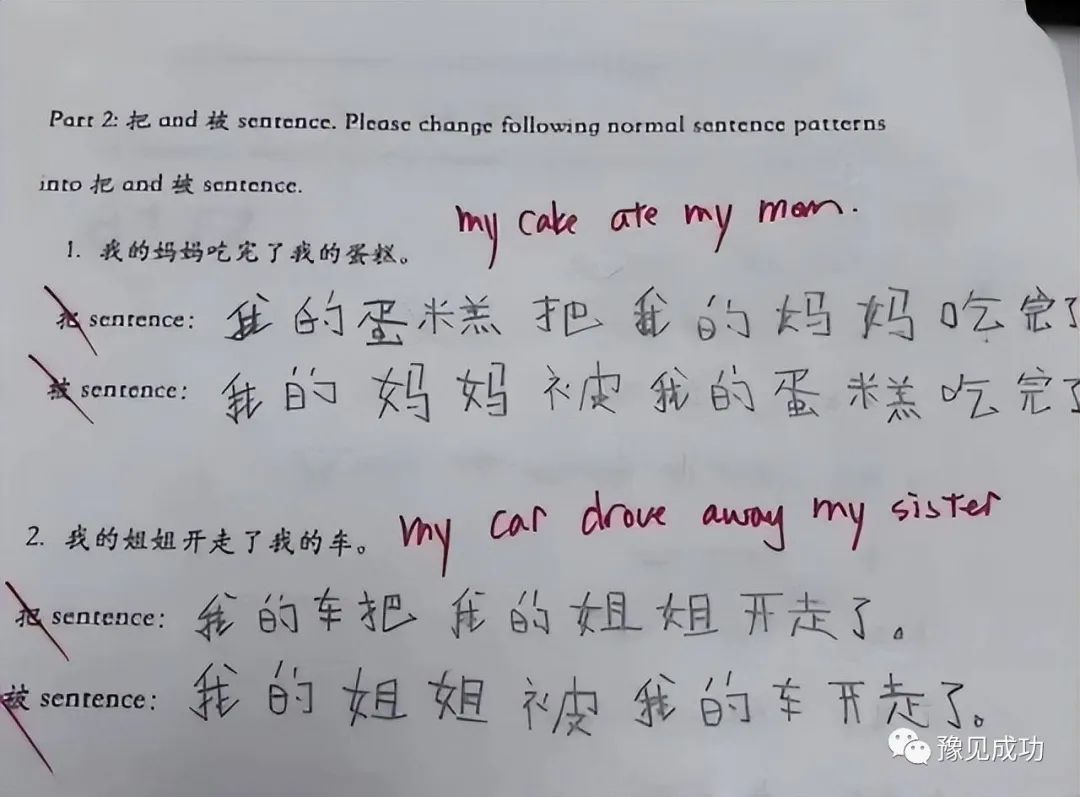 Part 2: 把 and 被 sentence. Please change following normal sentence patterns
into 把 and 被 sentence.
my cake ate my mom.
1. 我的妈妈吃完了我的蛋糕。
把 sentence: 我的蛋糕把我的妈妈吃完了
被 sentence: 我的妈妈被我的蛋糕吃完了
my car drove away my sister
2. 我的姐姐开走了我的车。
把 sentence: 我的车把我的姐姐开走了。
被 sentence: 我的姐姐被我的车开走了。
豫见成功